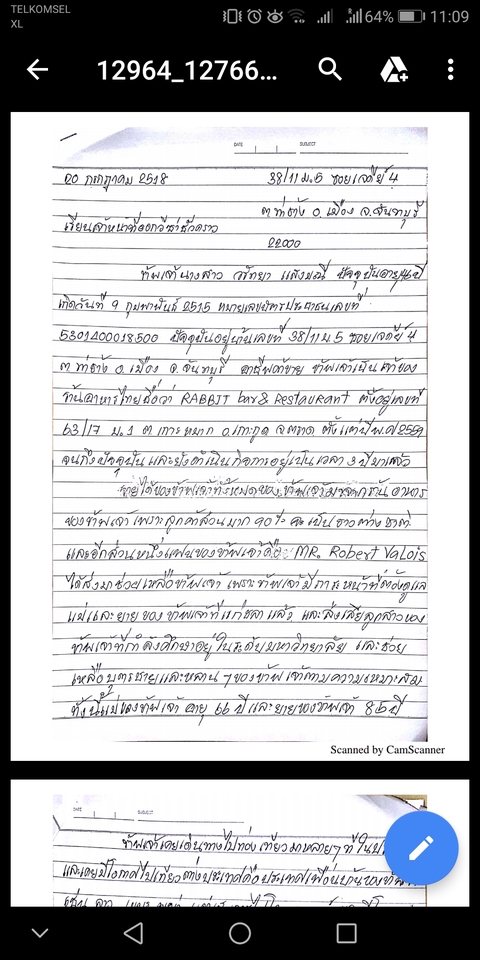 TELKOMSEL
XL
64% 11:09
12964_12766...
DATE SUBJECT
20 กรกฎาคม 2518 38/11 ม.5 ซอยเจดีย์ 4
ต.ท่าช้าง อ.เมือง จ.จันทบุรี
เรียนเจ้าหน้าที่ออกวีซ่าชั่วคราว
22000
ข้าพเจ้านางสาว แสงมณี ปัจจุบันอายุ 46 ปี
เกิดวันที่ 9 กุมภาพันธ์ 2515 หมายเลขบัตรประชาชนเลขที่
5301400018500 ปัจจุบันอยู่บ้านเลขที่ 38/11 ม.5 ซอยเจดีย์ 4
ต.ท่าช้าง อ.เมือง จ.จันทบุรี อาชีพค้าขาย ข้าพเจ้าเป็นเจ้าของ
ร้านอาหารไทยชื่อว่า RABBIT bar & Restaurant ตั้งอยู่เลขที่
63/17 ม.1 ต.เกาะหมาก อ.เกาะกูด จ.ตราด ตั้งแต่ปี พ.ศ 2559
จนถึงปัจจุบัน และยังดำเนินกิจการอยู่เป็นเวลา 3 ปีมาแล้ว
รายได้ของข้าพเจ้าทั้งหมดของข้าพเจ้ามาจากร้านอาหาร
ของข้าพเจ้า เพราะลูกค้าส่วนมาก 90 % คือ เป็นชาวต่างชาติ
และอีกส่วนหนึ่งแฟนของข้าพเจ้าคือ MR. Robert Valois
ได้ส่งมาช่วยเหลือข้าพเจ้า เพราะข้าพเจ้ามีภาระหน้าที่ต้องดูแล
แม่และยายของข้าพเจ้าที่แก่ชราแล้ว และส่งเสียลูกสาวของ
ข้าพเจ้าที่กำลังศึกษาอยู่ในระดับมหาวิทยาลัย และช่วย
เหลือบุตรชายและหลาน ๆ ของข้าพเจ้าตามความเหมาะสม
ทั้งนี้แม่ของข้าพเจ้า อายุ 66 ปี และยายของข้าพเจ้า 85 ปี
Scanned by CamScanner
DATE SUBJECT
ข้าพเจ้าเคยเดินทางไปท่องเที่ยวมาหลายๆ ที่ในประ
และเคยมีโอกาสไปเที่ยวต่างประเทศคือประเทศเพื่อนบ้านของ
เช่น ลาว